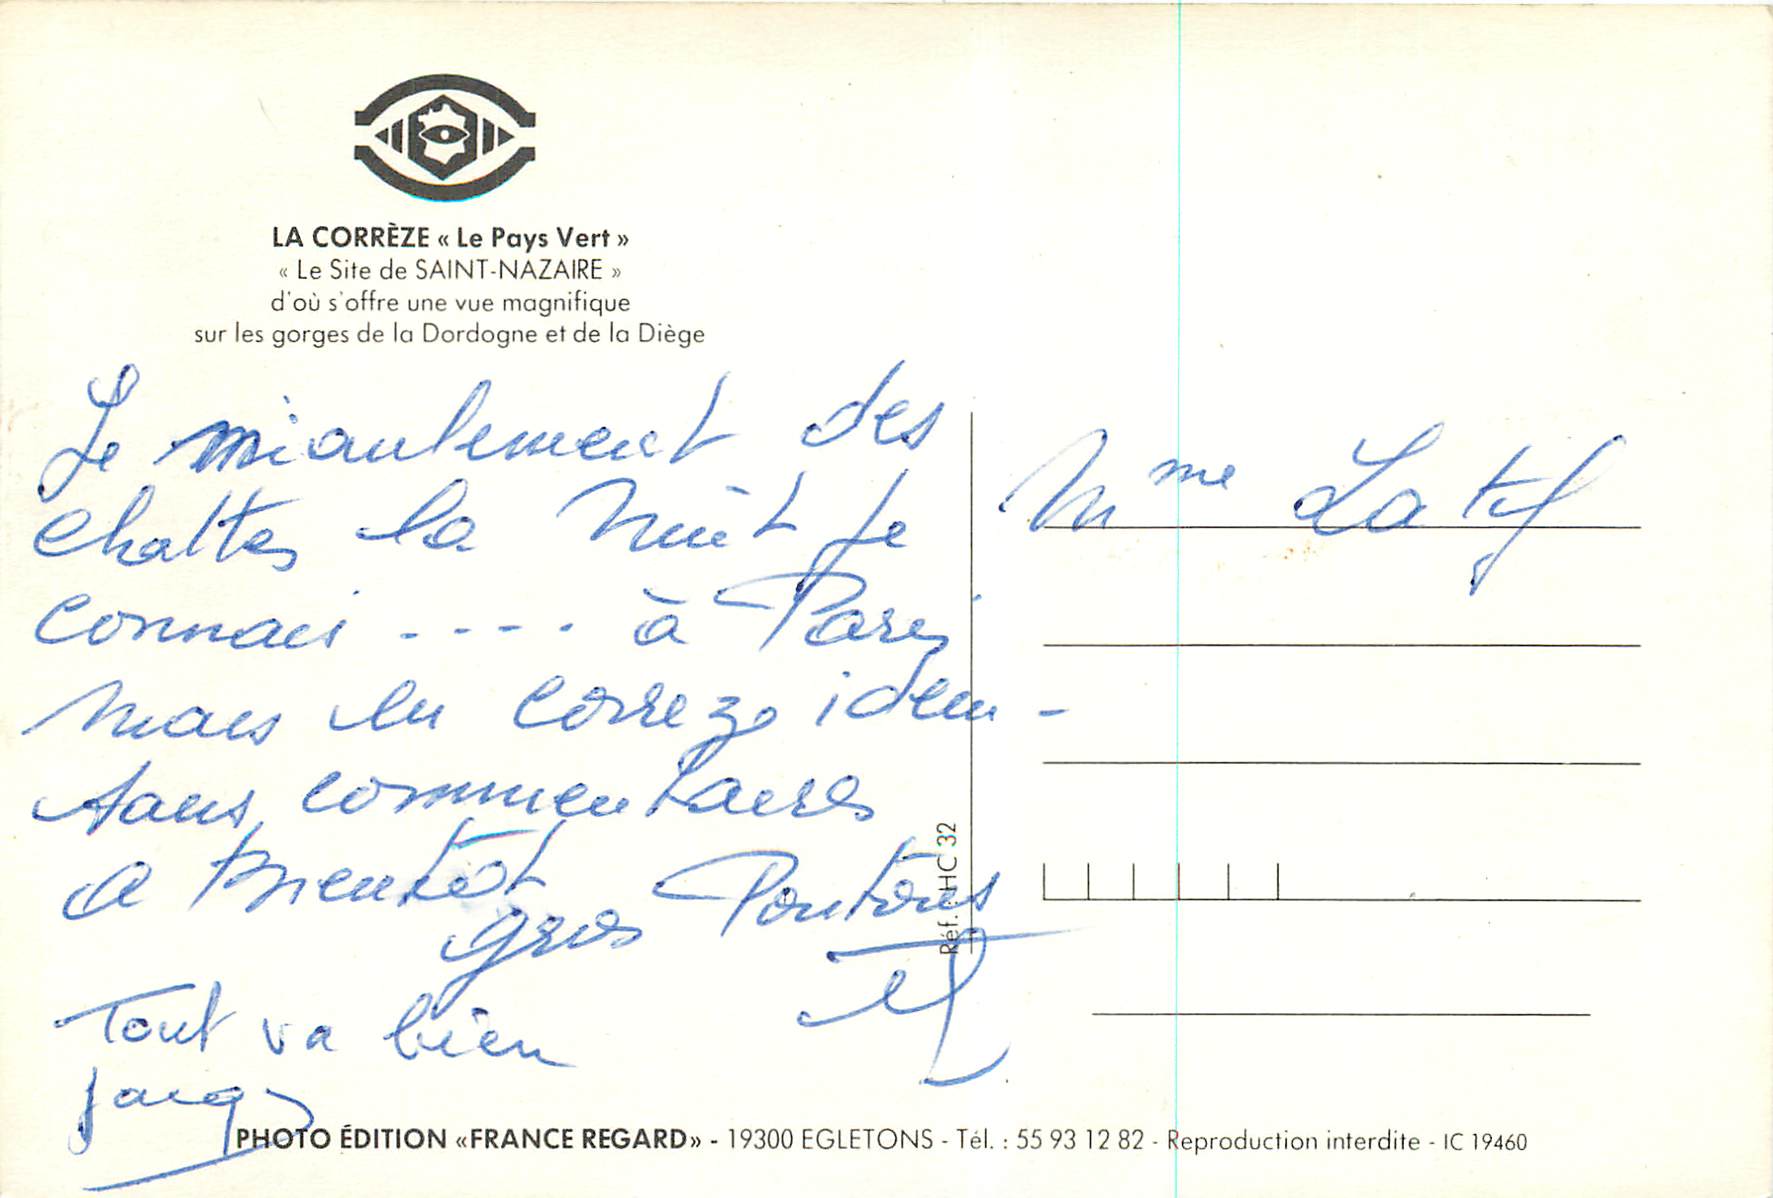 LA CORRÈZE « Le Pays Vert »
« Le Site de SAINT-NAZAIRE »
d'où s'offre une vue magnifique
sur les gorges de la Dordogne et de la Diège
Le miaulement des
chattes la nuit je
connais .... à Paris
mais en correze idem -
sans commentaires
a Bientôt
gros Poutous
Tout va bien
Jacqs
Mme Latif
Réf. HC 32
PHOTO ÉDITION «FRANCE REGARD» - 19300 EGLETONS - Tél. : 55 93 12 82 - Reproduction interdite - IC 19460